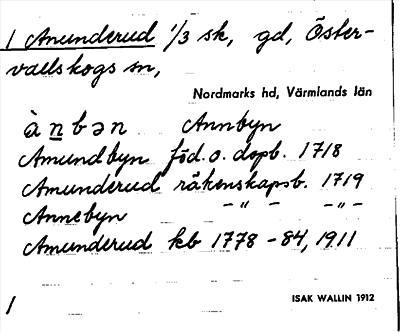 1 Amunderud 1/3 sk, gd, Öster-
vallskogs sn,
Nordmarks hd, Värmlands län
ànbən Annbyn
Amundbyn föd. o. dopb. 1718
Amunderud räkenskapsb. 1719
Annebyn –"– –"–
Amunderud kb 1778-84, 1911
1
ISAK WALLIN 1912